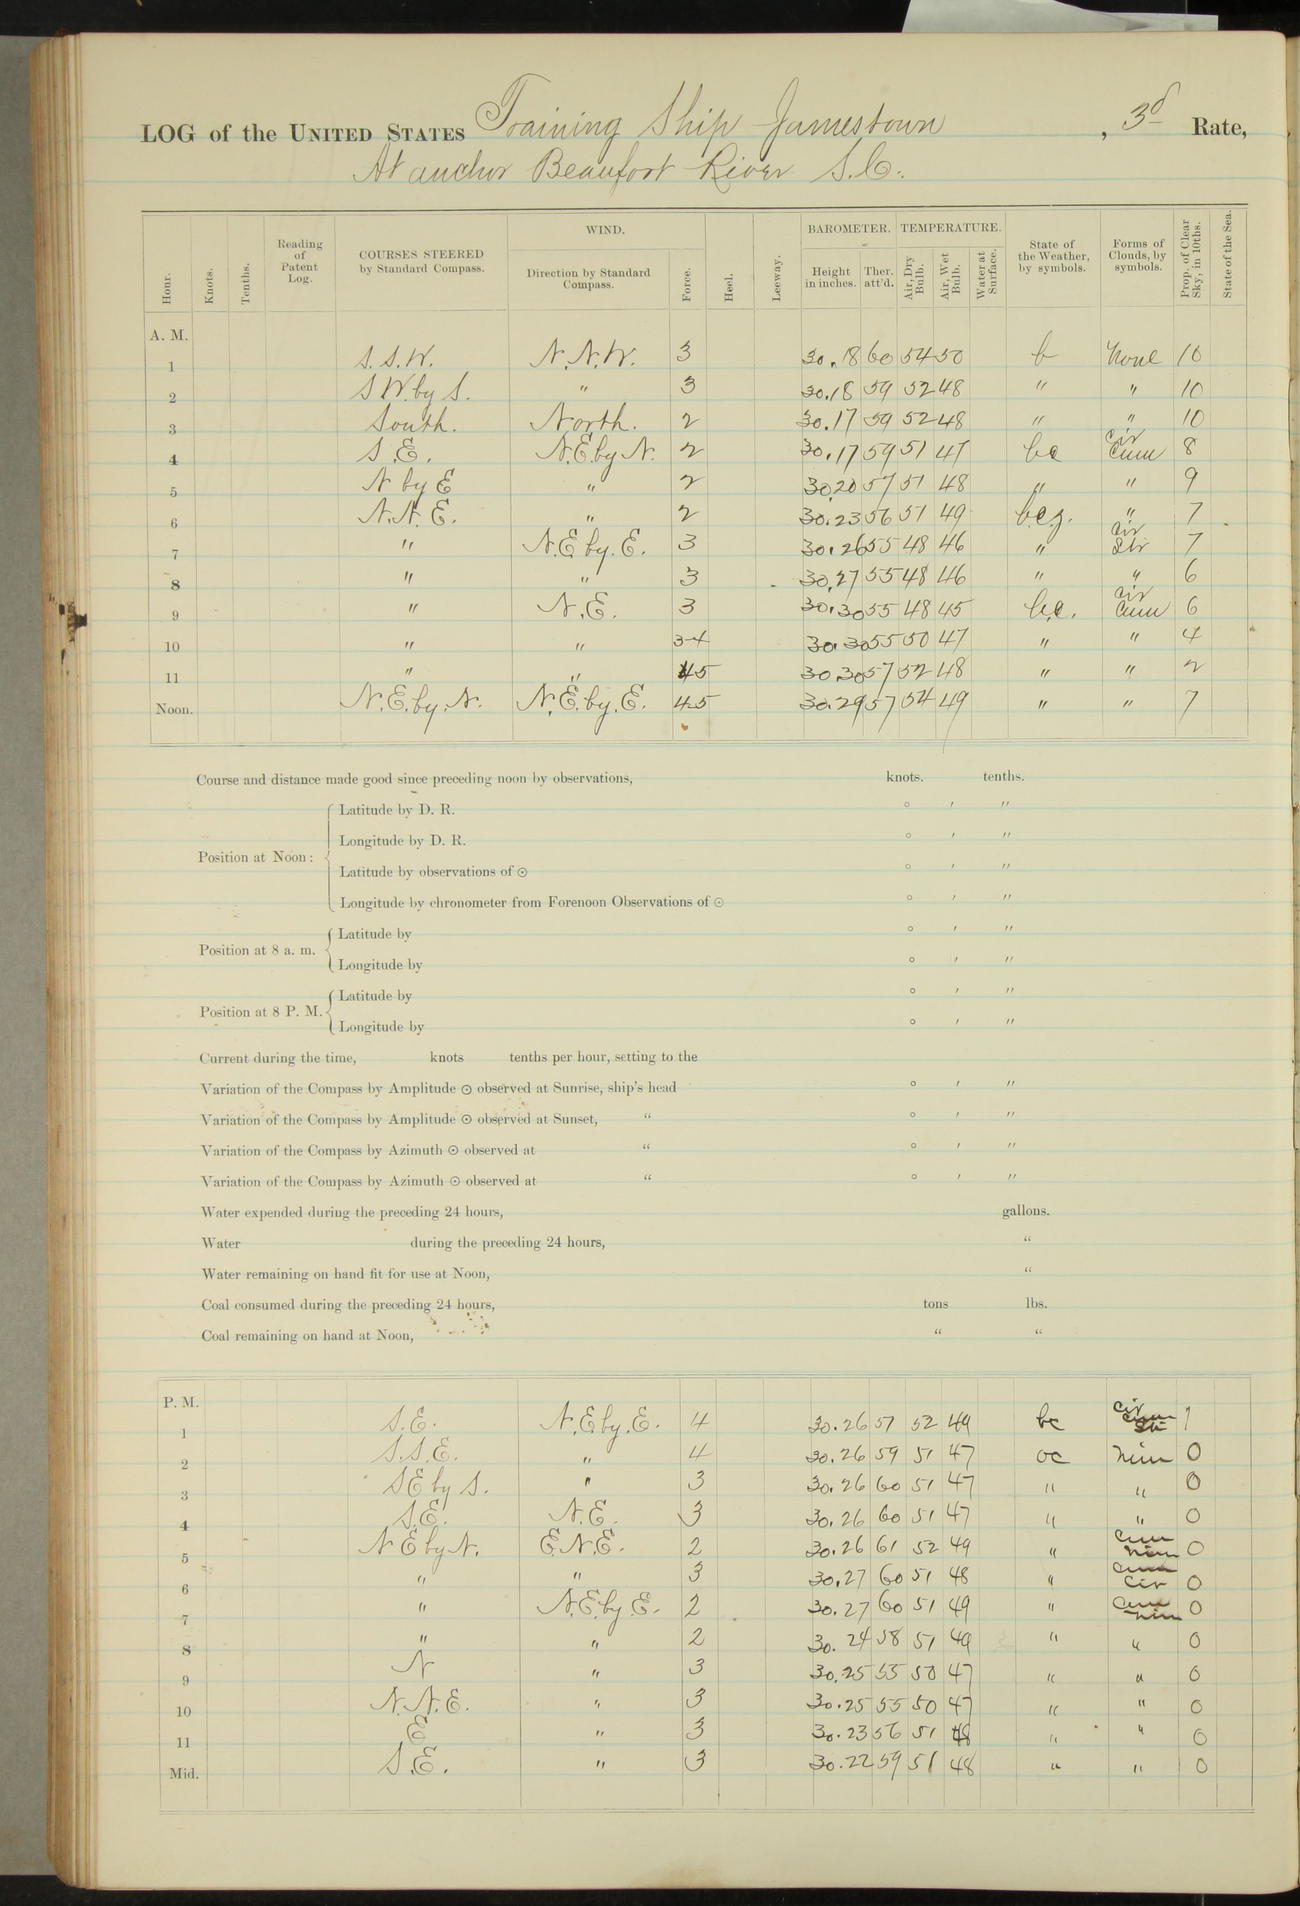 LOG of the UNITED STATES Training Ship Jamestown, 3d Rate,
At anchor Beaufort River S.C.
Hour. Knots. Tenths. Reading of Patent Log. COURSES STEERED by Standard Compass. WIND. Direction by Standard Compass. Force. Heel. Leeway. BAROMETER. Height in inches. Ther. att'd. TEMPERATURE. Air, Dry Bulb. Air, Wet Bulb. Water at Surface. State of the Weather, by symbols. Forms of Clouds, by symbols. Prop. of Clear Sky, in 10ths. State of the Sea.
A. M.
1 S.S.W. N.N.W. 3 30.18 60 54 50 b None 10
2 SW. by S. " 3 30.18 59 52 48 " " 10
3 South. North. 2 30.17 59 52 48 " " 10
4 S.E. N.E by N. 2 30.17 59 51 47 bc cir cum 8
5 N by E " 2 30.20 57 51 48 " " 9
6 N.N.E. " 2 30.23 56 51 49 bcg. " 7
7 " N.E by. E. 3 30.26 55 48 46 " cir Str 7
8 " " 3 30.27 55 48 46 " " 6
9 " N.E. 3 30.30 55 48 45 b.c. cir cum 6
10 " " 3-4 30.30 55 50 47 " " 4
11 " " 45 30.30 57 52 48 " " 2
Noon. N.E. by. N. N.E. by. E. 4-5 30.29 57 54 49 " " 7
Course and distance made good since preceding noon by observations, knots. tenths.
Position at Noon: Latitude by D. R. ° ′ ″
Longitude by D. R. ° ′ ″
Latitude by observations of ⊙ ° ′ ″
Longitude by chronometer from Forenoon Observations of ⊙ ° ′ ″
Position at 8 a. m. Latitude by ° ′ ″
Longitude by ° ′ ″
Position at 8 P. M. Latitude by ° ′ ″
Longitude by ° ′ ″
Current during the time, knots tenths per hour, setting to the
Variation of the Compass by Amplitude ⊙ observed at Sunrise, ship's head ° ′ ″
Variation of the Compass by Amplitude ⊙ observed at Sunset, " ° ′ ″
Variation of the Compass by Azimuth ⊙ observed at " ° ′ ″
Variation of the Compass by Azimuth ⊙ observed at " ° ′ ″
Water expended during the preceding 24 hours, gallons.
Water during the preceding 24 hours, "
Water remaining on hand fit for use at Noon, "
Coal consumed during the preceding 24 hours, tons lbs.
Coal remaining on hand at Noon, " "
P. M.
1 S.E. N.E by. E. 4 30.26 57 52 49 bc cir cum Str 1
2 S.S.E. " 4 30.26 59 51 47 oc Nim 0
3 SE by S. " 3 30.26 60 51 47 " " 0
4 S.E. N.E. 3 30.26 60 51 47 " " 0
5 N E by N. E.N.E. 2 30.26 61 52 49 " cum nim 0
6 " " 3 30.27 60 51 48 " cum cir 0
7 " N.E. by E. 2 30.27 60 51 49 " cum nim 0
8 " " 2 30.24 58 51 49 " " 0
9 N " 3 30.25 55 50 47 " " 0
10 N.N.E. " 3 30.25 55 50 47 " " 0
11 E " 3 30.23 56 51 48 " " 0
Mid. S.E. " 3 30.22 59 51 48 " " 0